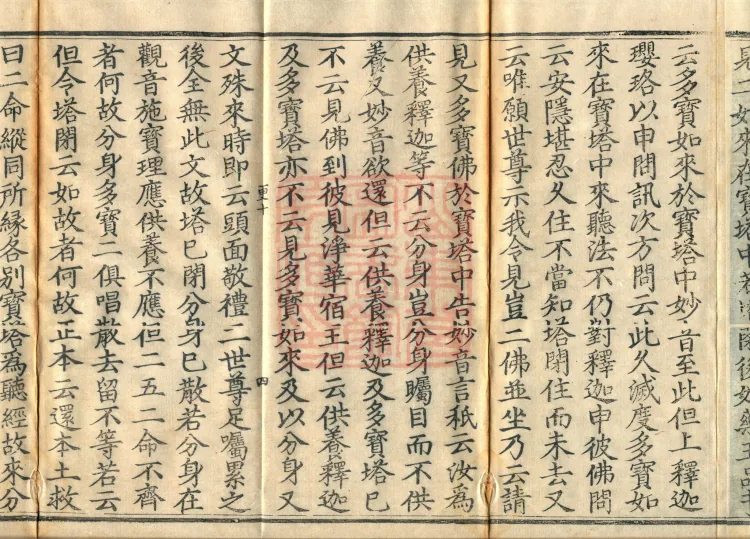 云多寶如來於寶塔中妙音至此但上釋迦
瓔珞以申問訊次方問云此久滅度多寶如
來在寶塔中來聽法不仍對釋迦申彼佛問
云安隱堪忍久住不當知塔閉住而未去又
云唯願世尊示我令見豈二佛並坐乃云請
見又多寶佛於寶塔中告妙音言秖云汝為
供養釋迦等不云分身豈分身矚目而不供
養又妙音欲還但云供養釋迦及多寶塔已
不云見佛到彼見淨華宿王但云供養釋迦
及多寶塔亦不云見多寶如來及以分身又
文殊來時即云頭面敬禮二世尊足囑累之
後全無此文故塔已閉分身已散若分身在
觀音施寶理應供養不應但二五二命不齊
者何故分身多寶二俱唱散去留不等若云
但令塔閉云如故者何故正本云還本土救
曰二命縱同所緣各別寶塔為聽經故來分